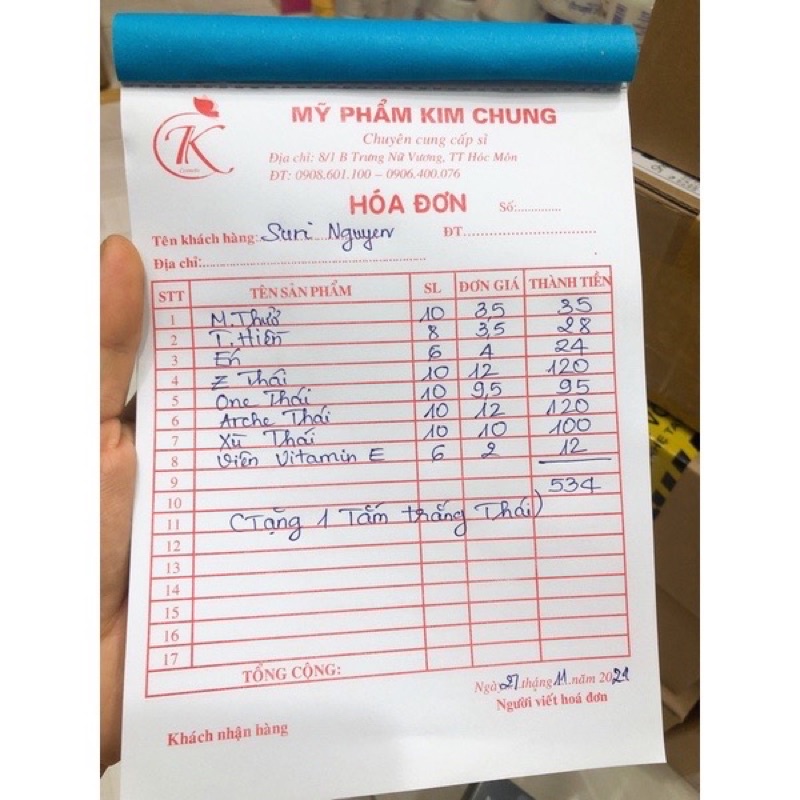 MỸ PHẨM KIM CHUNG
Chuyên cung cấp sỉ
Địa chỉ: 8/1 B Trưng Nữ Vương, TT Hóc Môn
ĐT: 0908.601.100 – 0906.400.076
TK
HÓA ĐƠN Số:.............
Tên khách hàng: Suri Nguyen ĐT...............................
Địa chỉ:.......................................................
STT TÊN SẢN PHẨM SL ĐƠN GIÁ THÀNH TIỀN
1 M.Thưở 10 3,5 35
2 T.Hiền 8 3,5 28
3 Én 6 4 24
4 Z Thái 10 12 120
5 One Thái 10 9,5 95
6 Arche Thái 10 12 120
7 Xù Thái 10 10 100
8 Viên Vitamin E 6 2 12
9 534
10
11 (Tặng 1 Tắm trắng Thái)
12
13
14
15
16
17
TỔNG CỘNG:
Ngày 27 tháng 11 năm 2021
Khách nhận hàng Người viết hoá đơn